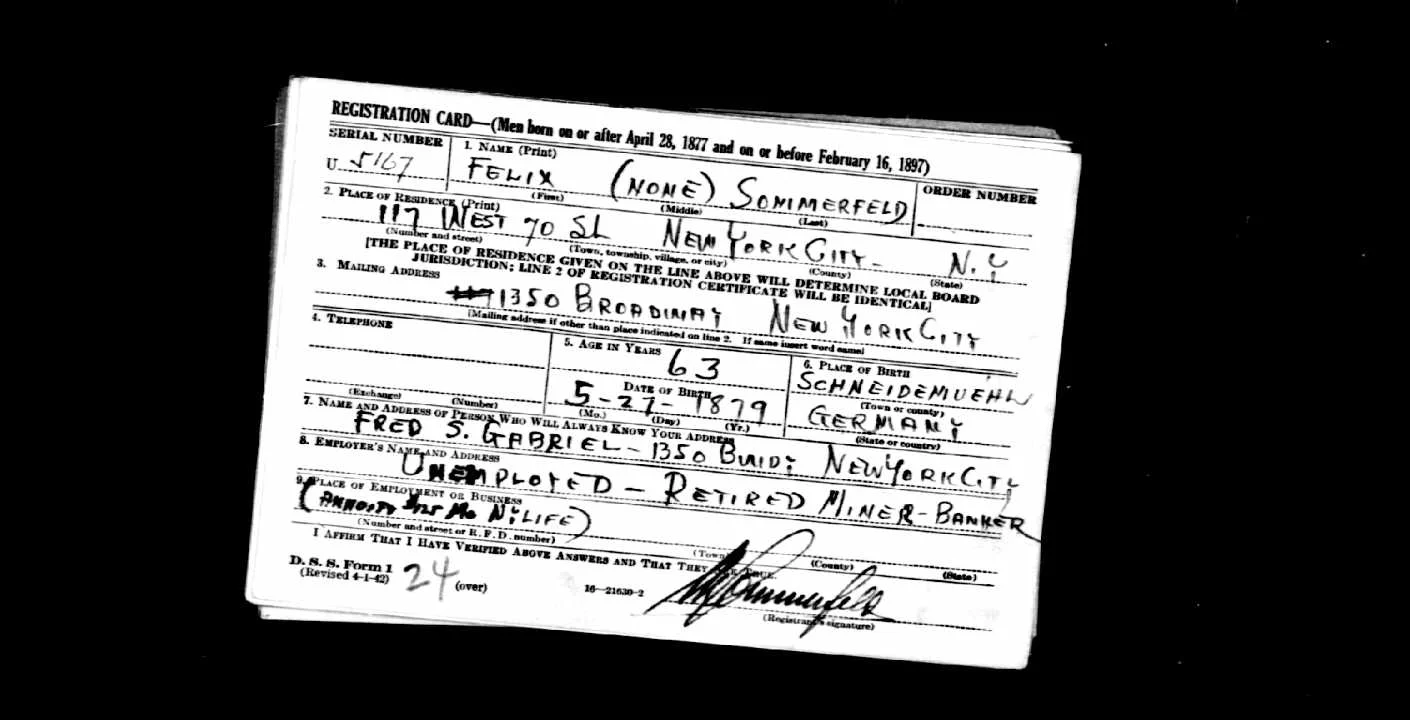 REGISTRATION CARD—(Men born on or after April 28, 1877 and on or before February 16, 1897)
SERIAL NUMBER
U 5167
1. NAME (Print)
FELIX (NONE) SOMMERFELD
(First) (Middle) (Last)
ORDER NUMBER
2. PLACE OF RESIDENCE (Print)
117 WEST 70 St NEW YORK CITY - N.Y
(Number and street) (Town, township, village, or city) (County) (State)
[THE PLACE OF RESIDENCE GIVEN ON THE LINE ABOVE WILL DETERMINE LOCAL BOARD
JURISDICTION; LINE 2 OF REGISTRATION CERTIFICATE WILL BE IDENTICAL]
3. MAILING ADDRESS
1350 BROADWAY NEW YORK CITY
(Mailing address if other than place indicated on line 2. If same insert word same)
4. TELEPHONE
(Exchange) (Number)
5. AGE IN YEARS
63
DATE OF BIRTH
5-27-1879
(Mo.) (Day) (Yr.)
6. PLACE OF BIRTH
SCHNEIDEMUEHL
(Town or county)
GERMANY
(State or country)
7. NAME AND ADDRESS OF PERSON WHO WILL ALWAYS KNOW YOUR ADDRESS
FRED S. GABRIEL - 1350 BWDY NEW YORK CITY
8. EMPLOYER'S NAME AND ADDRESS
UNEMPLOYED - RETIRED MINER - BANKER
9. PLACE OF EMPLOYMENT OR BUSINESS
(ANNUITY $125 Mo N.Y LIFE)
(Number and street or R. F. D. number) (Town) (County) (State)
I AFFIRM THAT I HAVE VERIFIED ABOVE ANSWERS AND THAT THEY ARE TRUE.
D. S. S. Form 1
(Revised 4-1-42)
24
(over)
16—21630-2
Sommerfeld
(Registrant's signature)